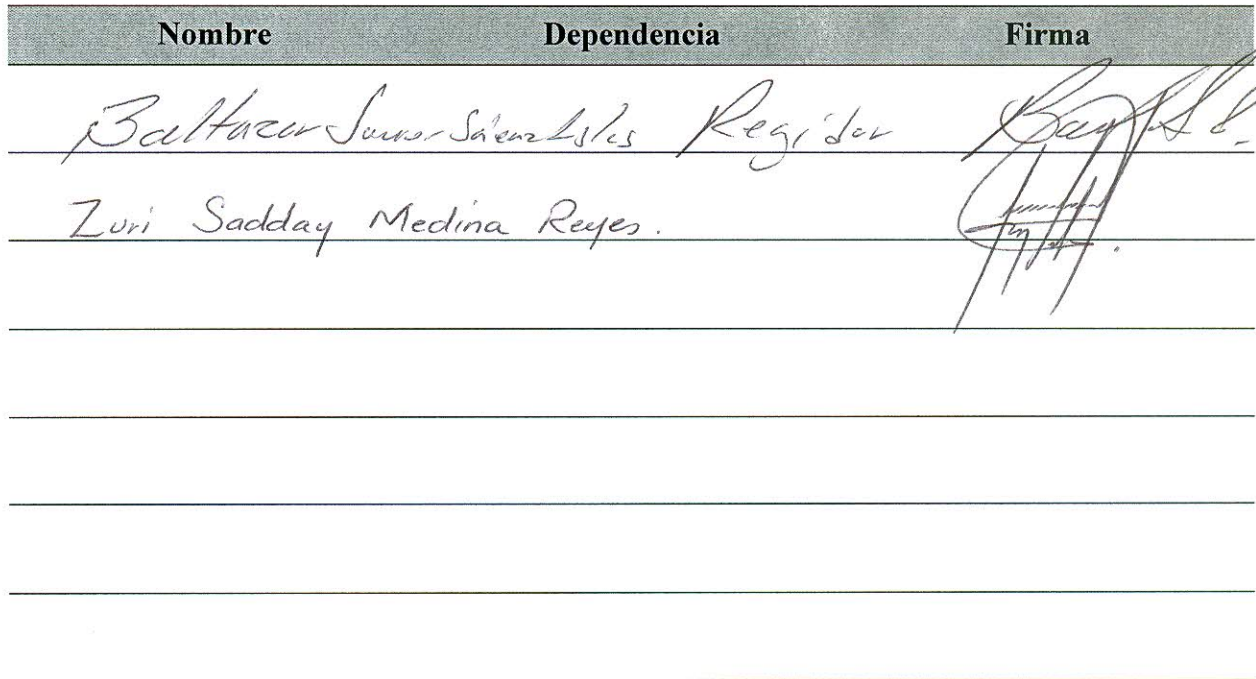 Nombre Dependencia Firma
Baltazar Sáenz Islas Regidor
Zuri Sadday Medina Reyes.